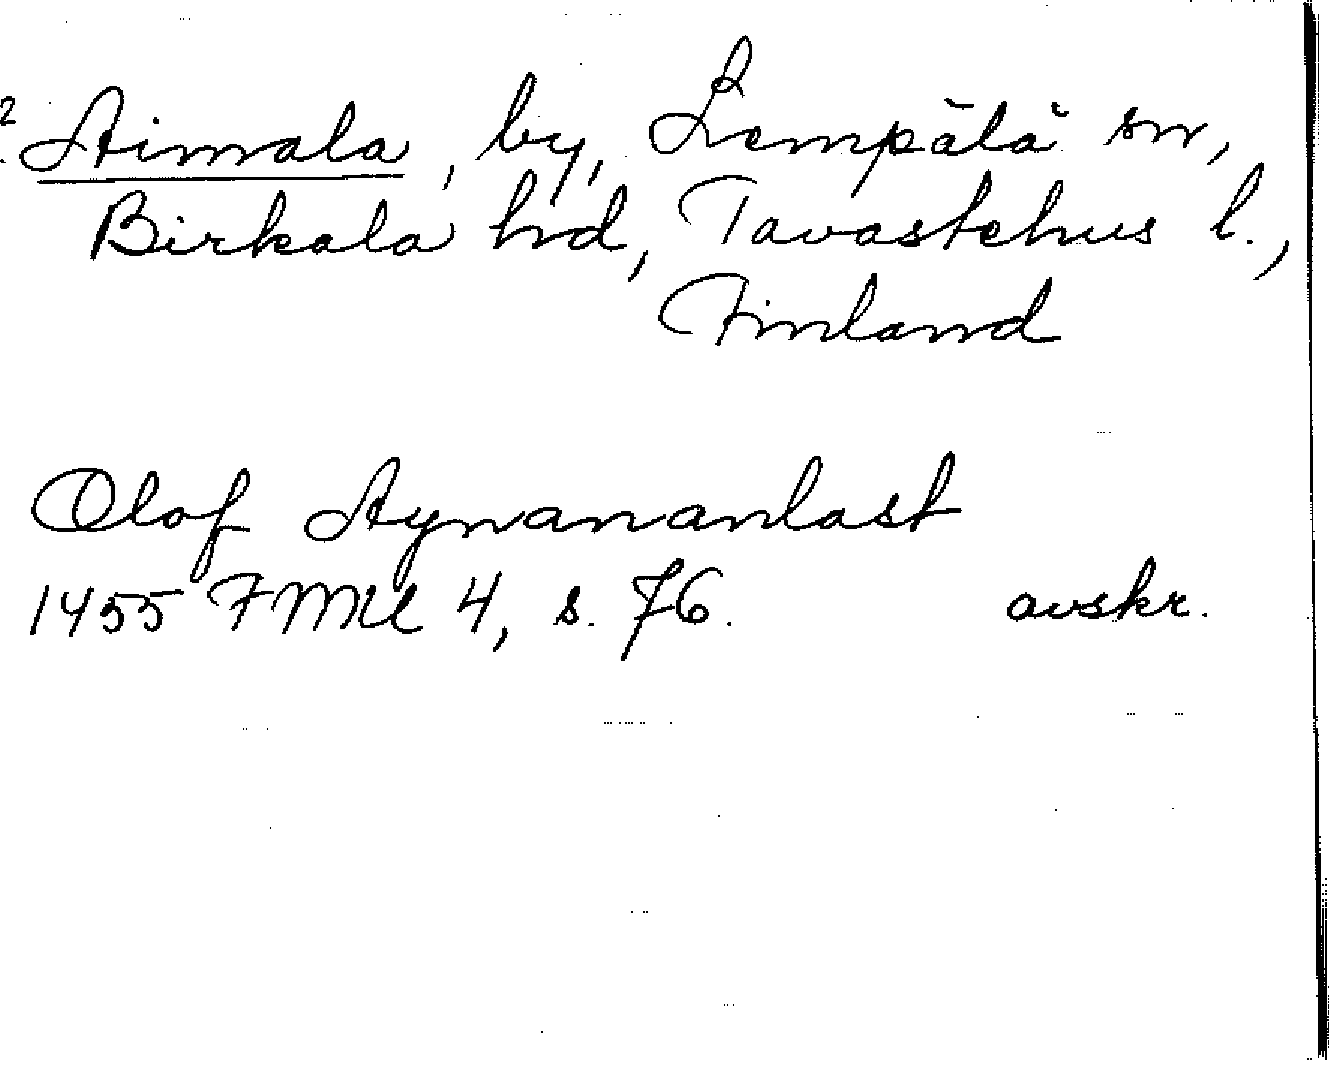 2 Aimala, by, Lempälä sn,
Birkala hd, Tavastehus l.,
Finland
Olof Aynananlast
1455 FMU 4, s. 76. avskr.